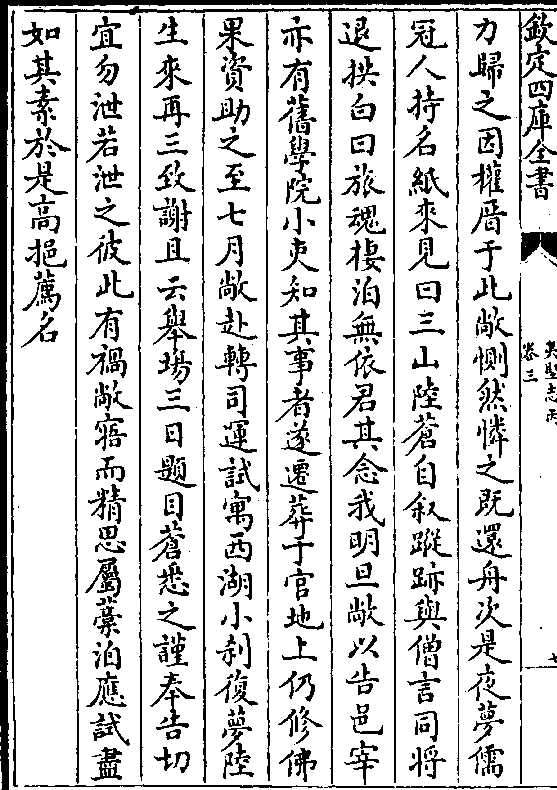 欽定四庫全書
夷堅志丙
卷三
力歸之因權厝于此敞惻然憐之既還舟次是夜夢儒
冠人持名紙來見曰三山陸蒼自叙蹤跡與僧言同將
退拱白曰旅魂棲泊無依君其念我明旦敞以告邑宰
亦有舊學院小吏知其事者遂遷葬于官地上仍修佛
果資助之至七月敞赴轉司運試寓西湖小刹復夢陸
生來再三致謝且云舉場三日題目蒼悉之謹奉告切
宜勿泄若泄之彼此有禍敞寤而精思屬藁泊應試盡
如其素於是高挹薦名